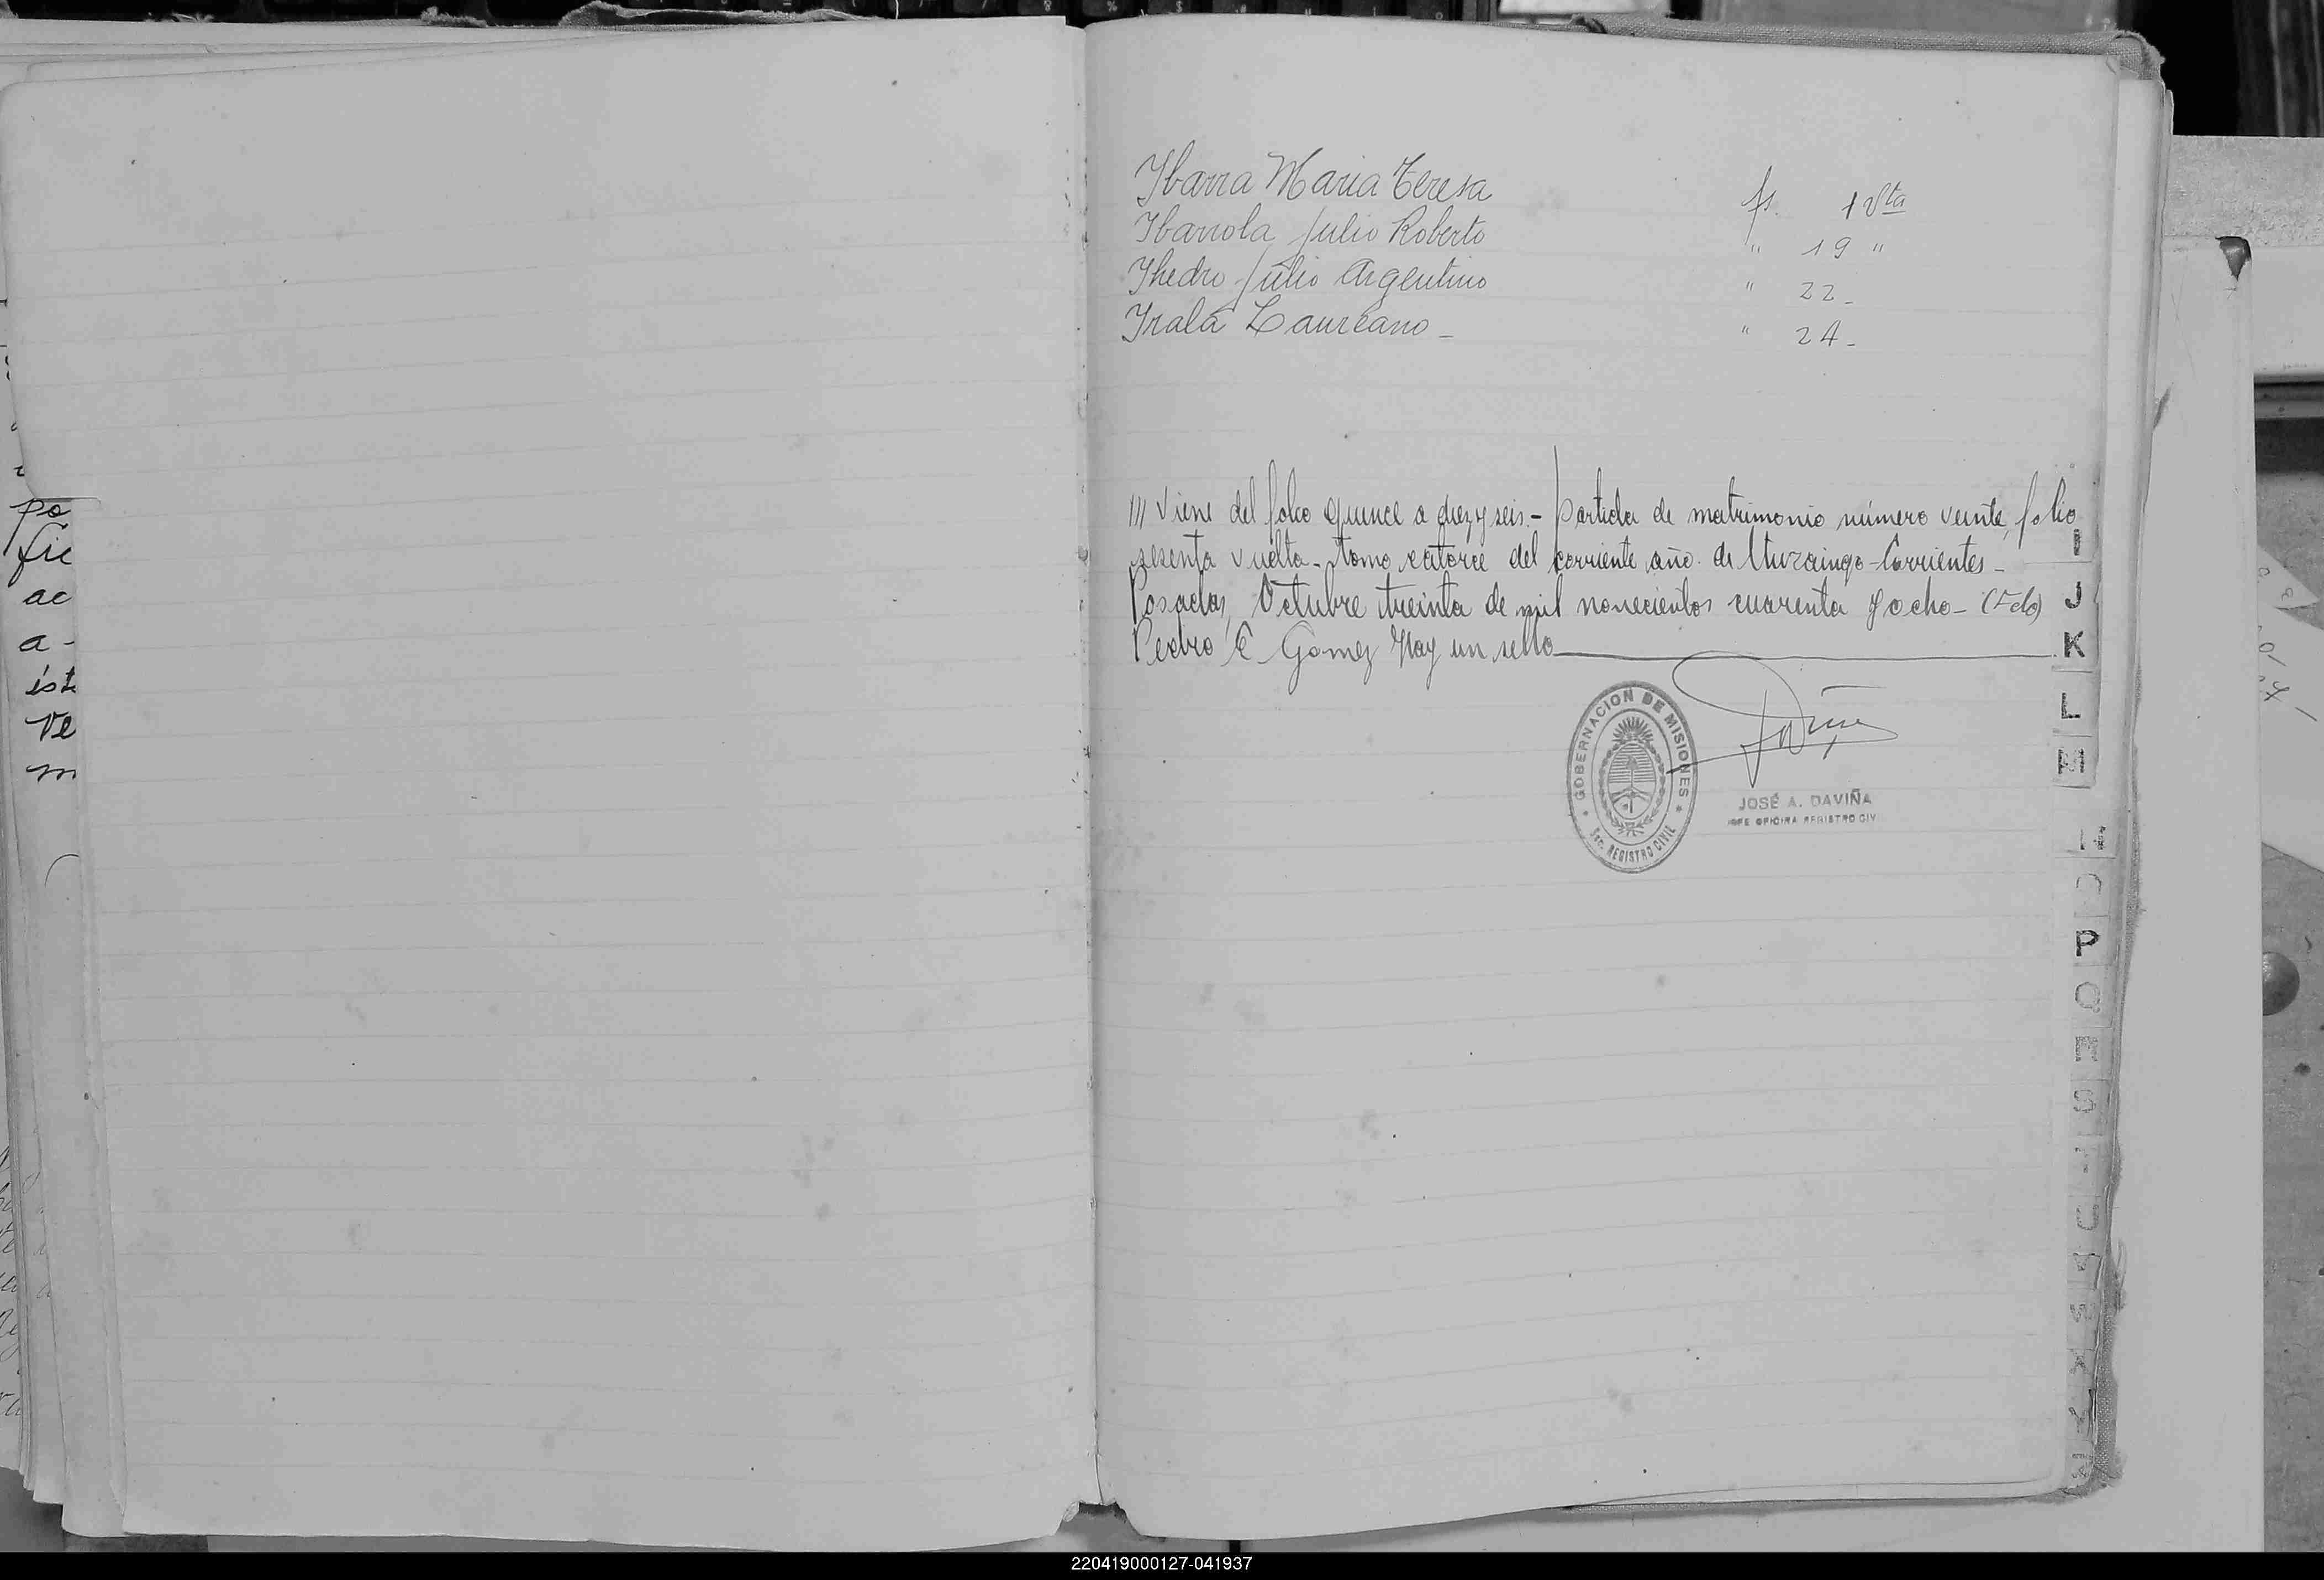 po
fie
ac
a -
ist
Ve
m
Ibarra Maria Teresa fs. 1 Vta
Ibarrola Julio Roberto " 19 "
Ihedro Julio Argentino " 22 -
Irala Laureano - " 24 -
/// Viene del folio quince a diez y seis.- Partida de matrimonio número veinte, folio
sesenta vuelta - tomo catorce del corriente año. de Ituzaingo - Corrientes -
Posadas, Octubre treinta de mil novecientos cuarenta y ocho - (Fdo)
Pedro C Gomez Hay un sello
GOBERNACION DE MISIONES
Sec. REGISTRO CIVIL
JOSÉ A. DAVIÑA
JEFE OFICINA REGISTRO CIV
I
J
K
L
M
N
O
P
Q
R
S
T
U
V
W
X
Y
Z
220419000127-041937